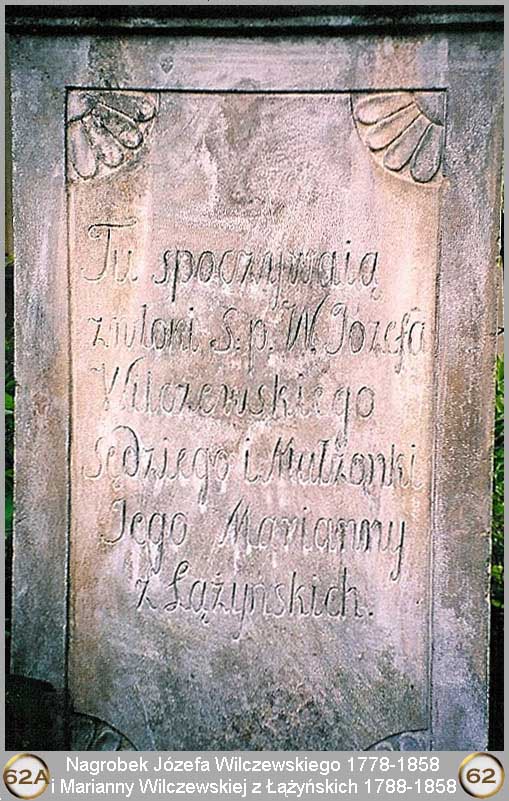 Tu spoczywaią
zwłoki S.p. W. Józefa
Wilczewskiego
Sędziego i Małżonki
Jego Marianny
z Łążyńskich.
Nagrobek Józefa Wilczewskiego 1778-1858
62A i Marianny Wilczewskiej z Łążyńskich 1788-1858 62